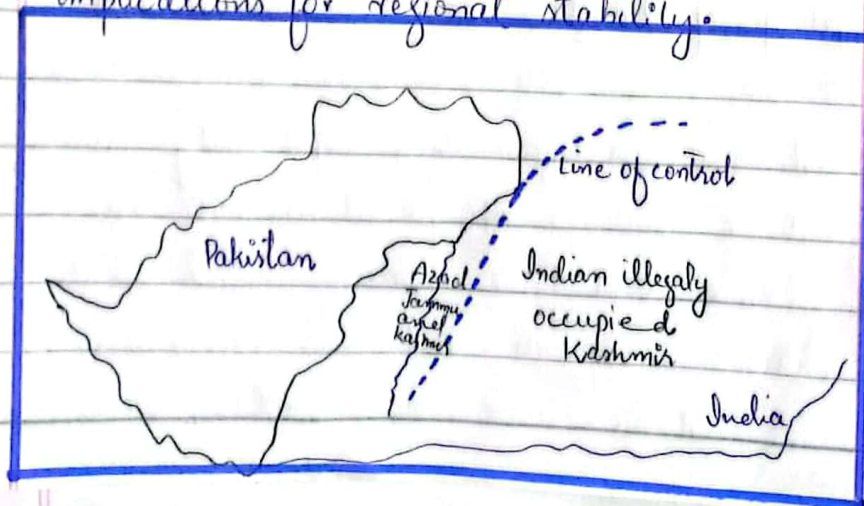 implications for regional stability.
Line of control
Pakistan
Azad
Jammu
and
Kashmir
Indian illegaly
occupied
Kashmir
India